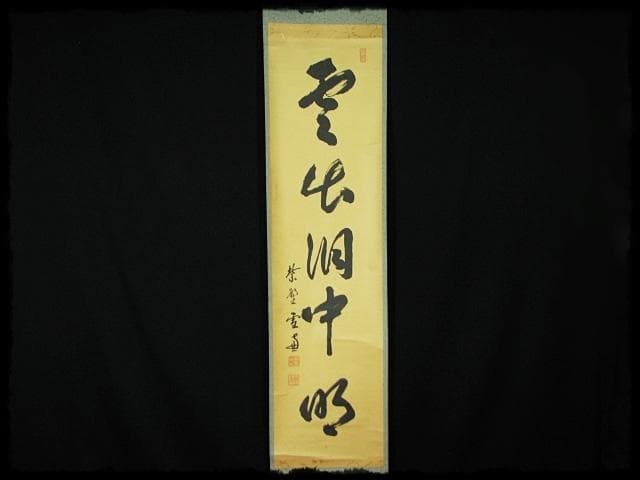 雲出洞中明
紫野